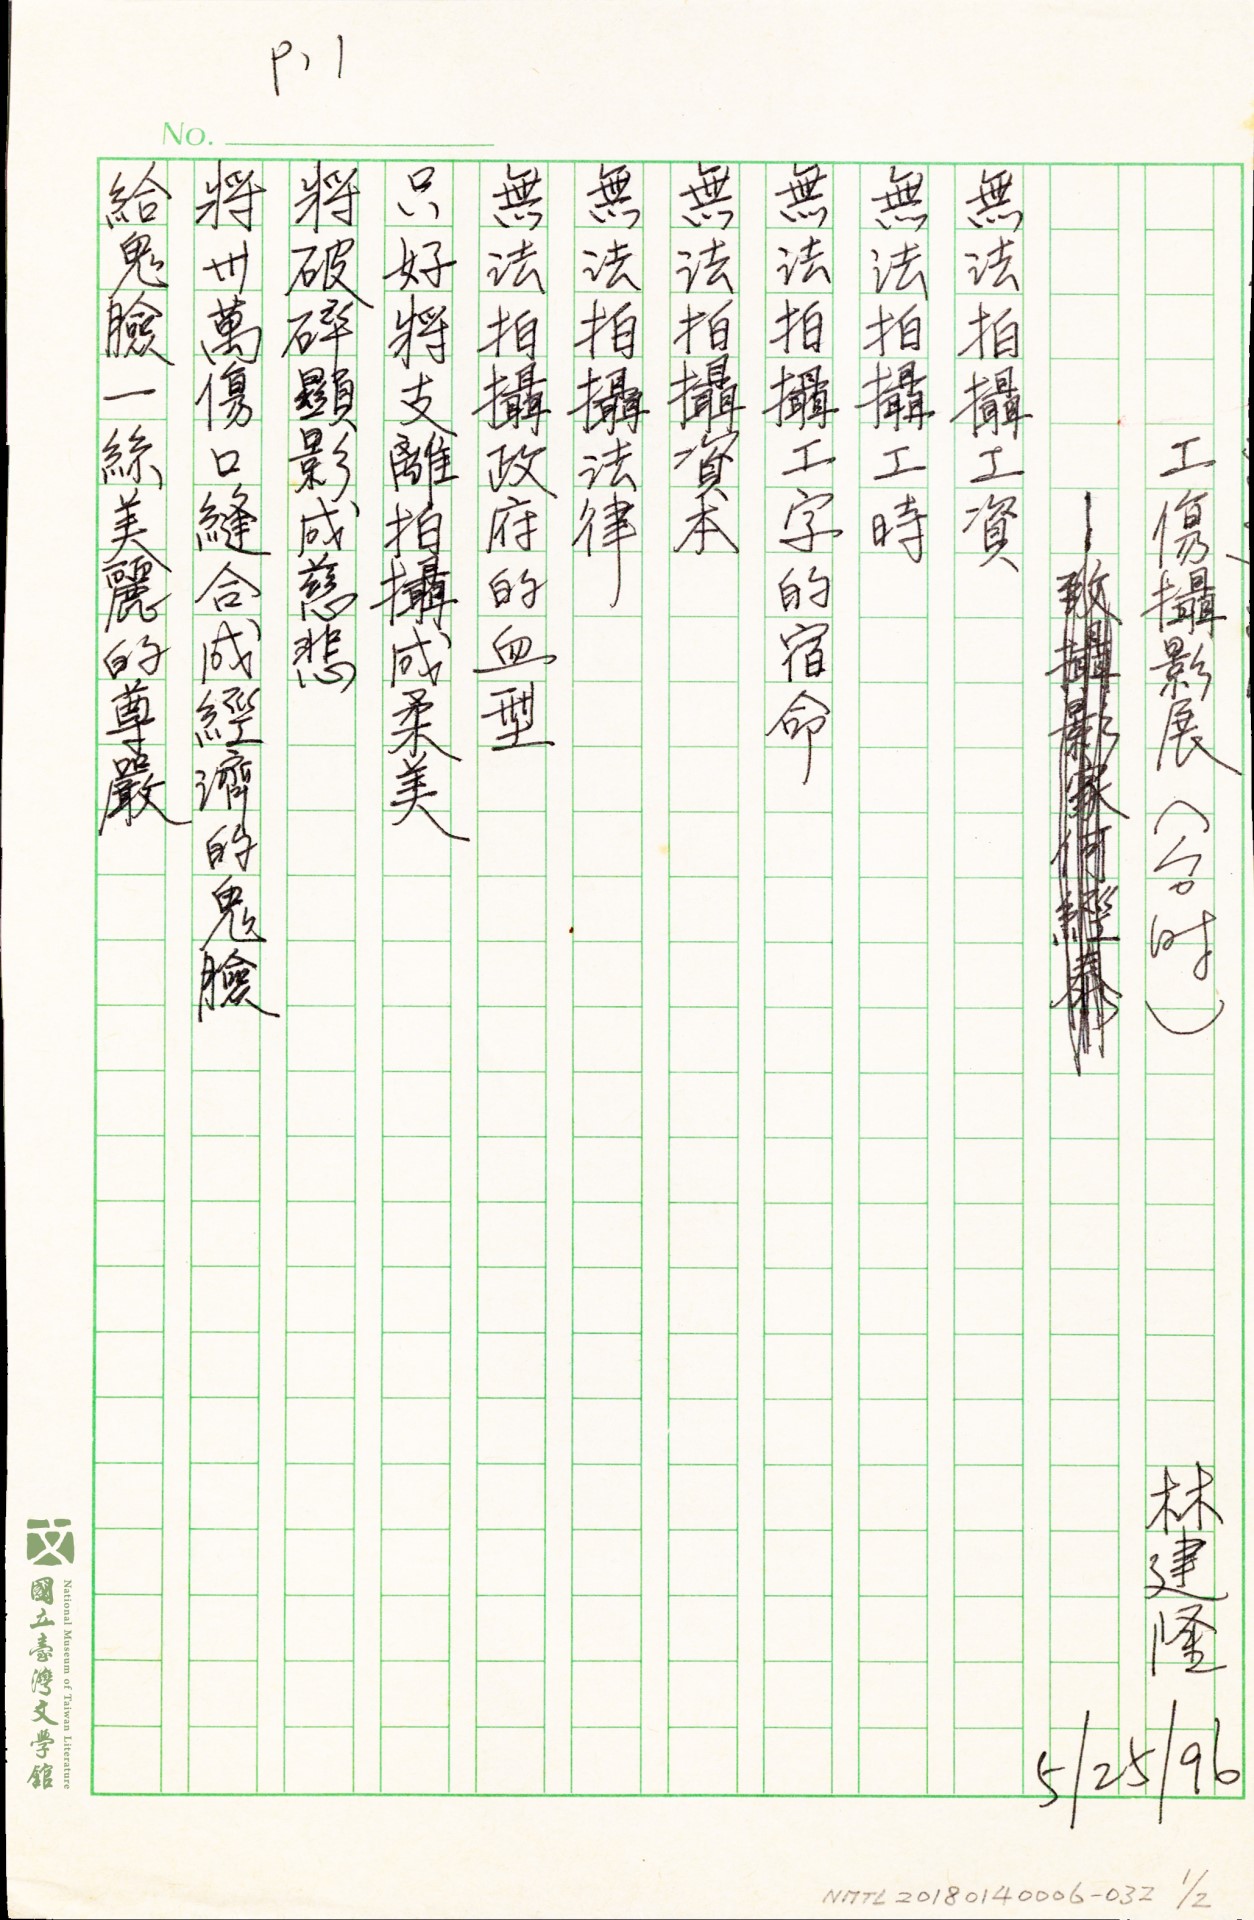 P.1
No.
工傷攝影展(台时)
林建隆
5/25/96
—致攝影家何經泰
無法拍攝工資
無法拍攝工時
無法拍攝工字的宿命
無法拍攝資本
無法拍攝法律
無法拍攝政府的血型
只好將支離拍攝成柔美
將破碎顯影成慈悲
將卅萬傷口縫合成經濟的鬼臉
給鬼臉一絲美麗的尊嚴
國立臺灣文學館
National Museum of Taiwan Literature
NMTL20180140006-032 1/2